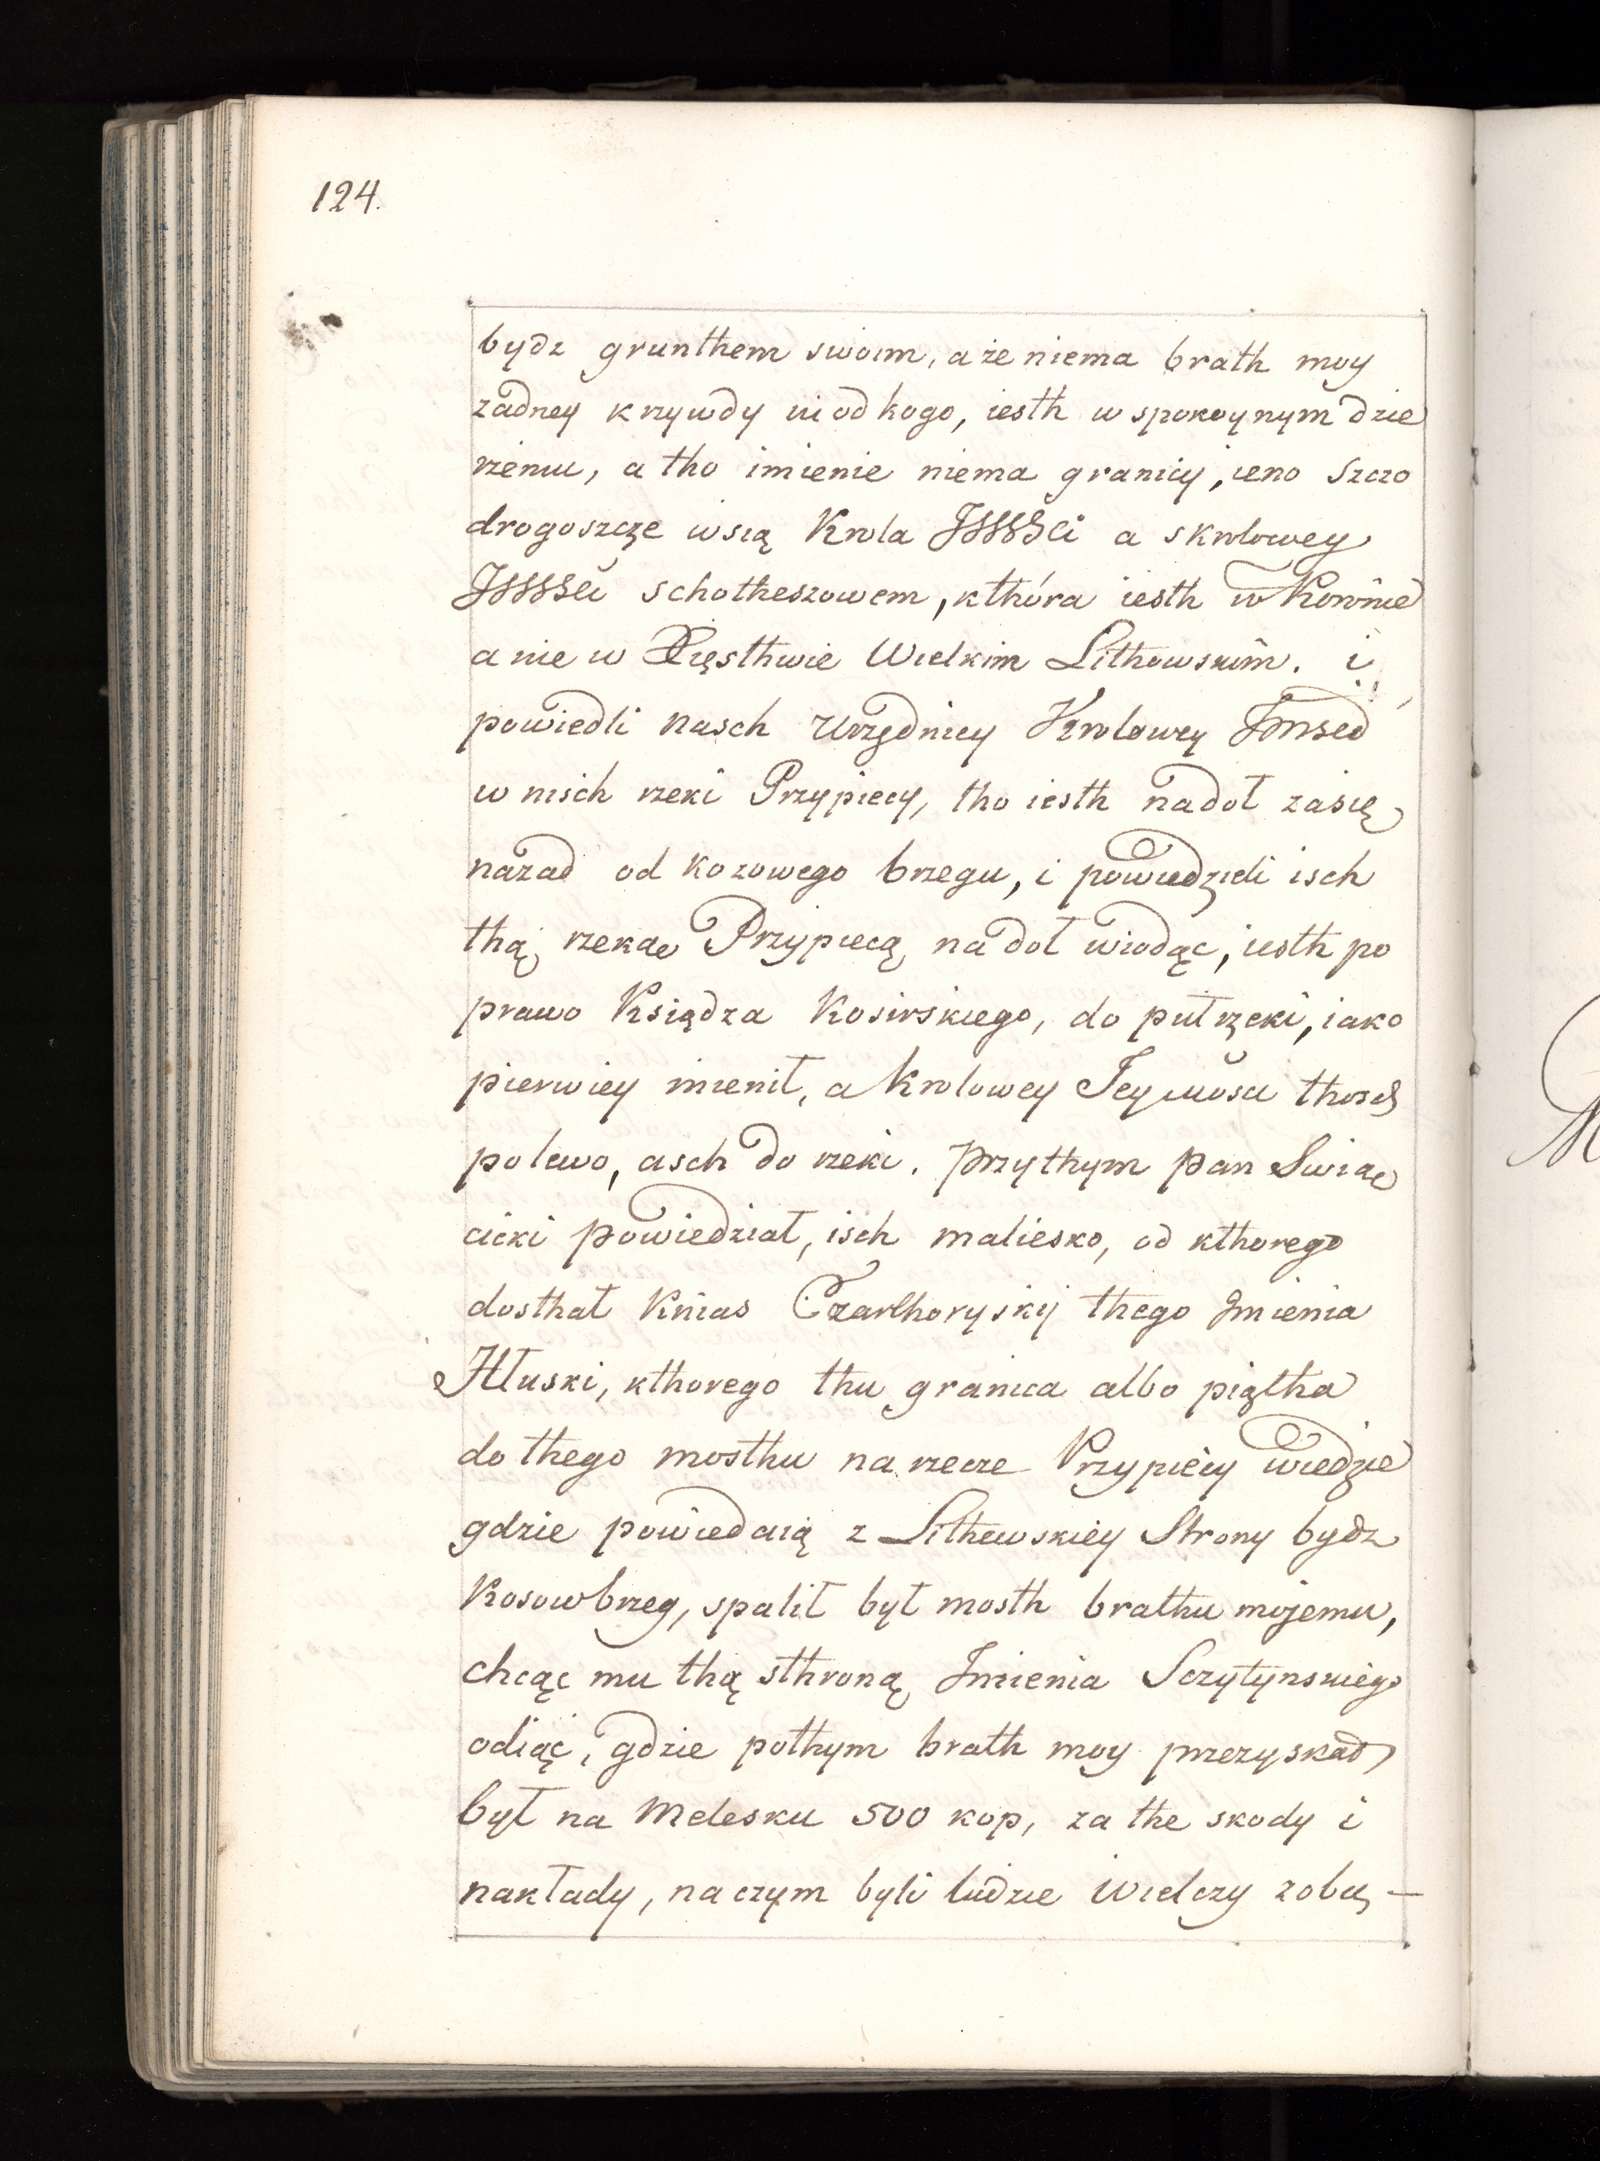 124.
bydz grunthem swoim, a że niema brath moy
zadney krzywdy ni od kogo, iesth w spokoynym dzie
rzeniu, a tho imienie niema granicy, ieno Szczo
drogoszcze wsią Krola a skrolowey
schotheszowem, kthóra iesth w Koronie
a nie w Xięsthwie Wielkim Lithowskim. i
powiedli nasch Urzędnicy Krolowey
w nisch rzeki Przypiecy, tho iesth na doł zasię
nazad od kozowego brzegu, i powiedzieli isch
thą rzeką Przypiecą na doł wiodąc, iesth po
prawo Księdza Kosirskiego, do puł rzeki, iako
pierwiey mienił, a Krolowey Jeymości thosch
po lewo, asch do rzeki. Przythym Pan Swia
cicki powiedział, isch maliesko, od kthorego
dosthał Knias Czarthoryskij thego Jmienia
Hłuski, kthorego thu granica albo piątha
do thego mosthu na rzecze Przypiecy wiedzie
gdzie powiedaią z Lithewskiey Strony bydz
Kosow brzeg, spalił był mosth brathu mojemu,
chcąc mu thą sthroną Jmienia Sczytynskiego
odiąć, gdzie pothym brath moy przezyskał
był na Melesku 500 kop, za the skody i
nakłady, na czym byli ludzie Wielczy zobu -